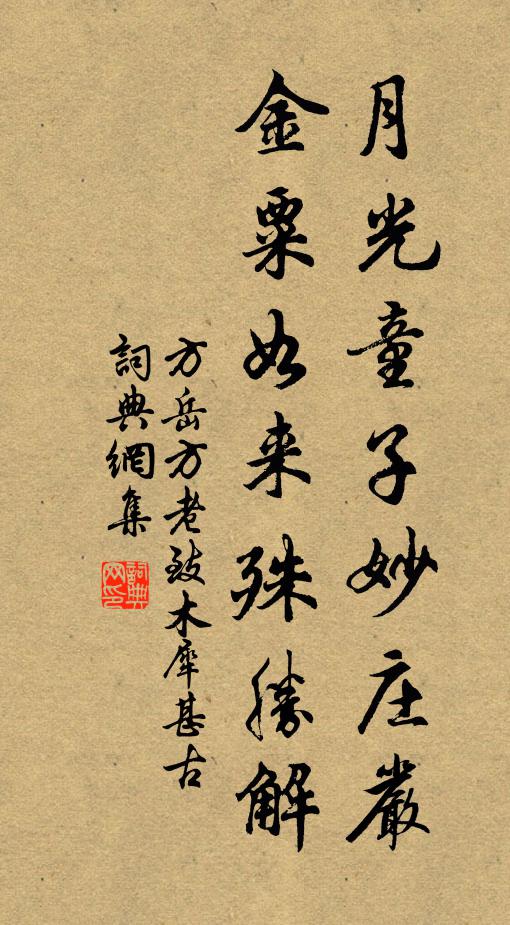 月光童子妙庄嚴
金粟如来殊勝解
方岳方老致木犀甚古
詞典網集
詞典网印